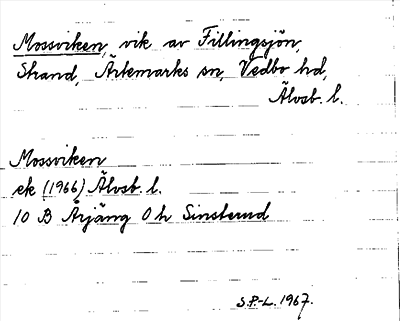 Mossviken, vik av Fillingsjön,
Strand, Ärtemarks sn, Vedbo hd,
Älvsb. l.
Mossviken
ek (1966) Älvsb. l.
10 B Årjäng 0 h Sinsterud
S.P.-L. 1967.